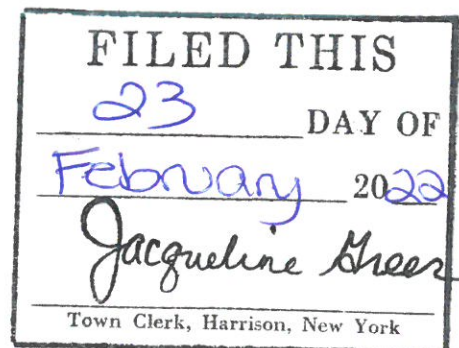 FILED THIS
23 DAY OF
February 2022
Jacqueline Greer
Town Clerk, Harrison, New York